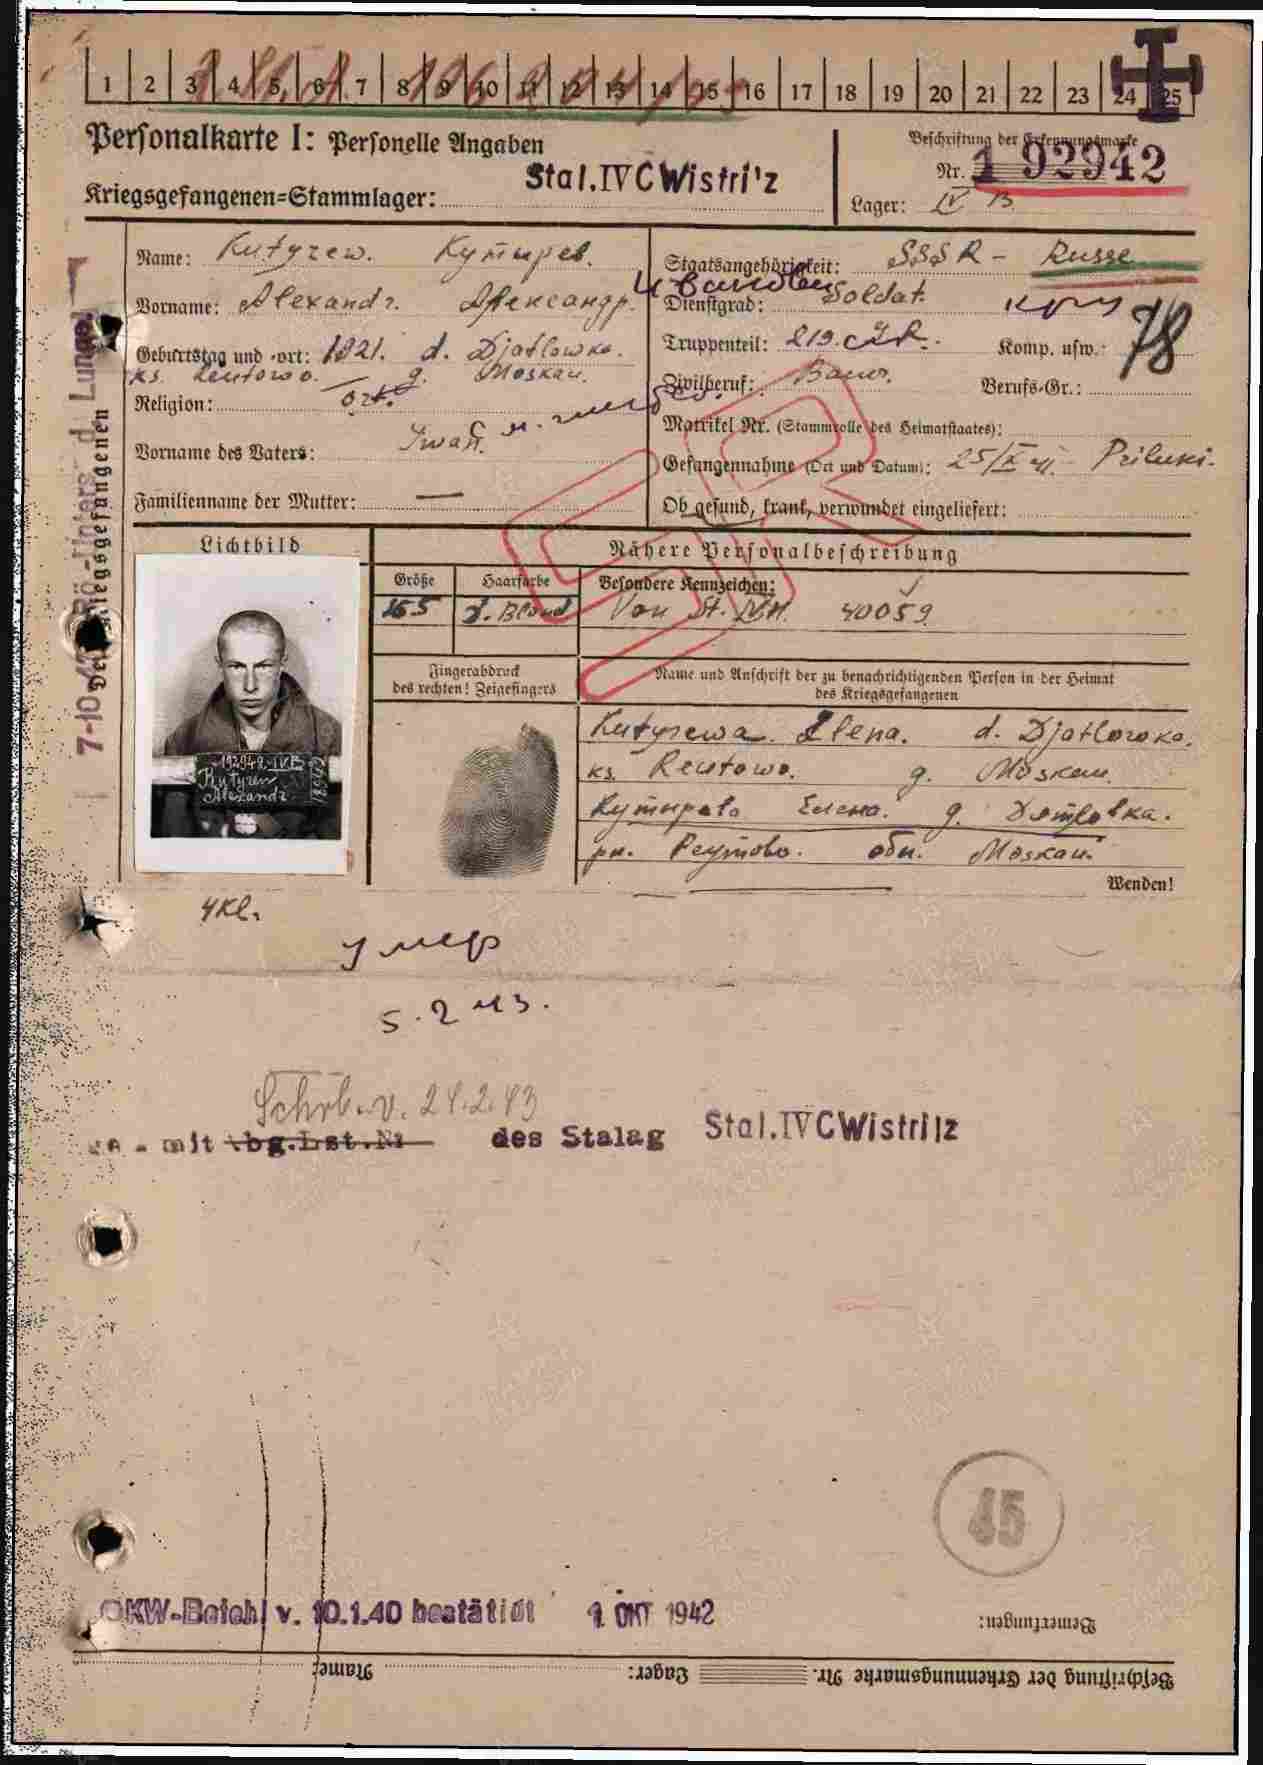 1 2 3 4 5 6 7 8 9 10 11 12 13 14 15 16 17 18 19 20 21 22 23 24 25
Personalkarte I: Personelle Angaben
Beschriftung der Erkennungsmarke
Nr. 192942
Kriegsgefangenen=Stammlager: Stal.IVC Wistritz
Lager: IV B
Name: Kutyrew. Кутырев.
Staatsangehörigkeit: SSSR - Russe
Иванович
Vorname: Alexandr. Александр.
Dienstgrad: Soldat.
Geburtstag und -ort: 1921. d. Djatlowka.
ks. Reutowo. g. Moskau.
Truppenteil: 219. Komp. usw.:
78
Zivilberuf: Bauer. Berufs-Gr.:
Religion: ort.
Matrikel Nr. (Stammrolle des Heimatstaates):
Vorname des Vaters: Iwan.
Gefangennahme (Ort und Datum): 25/IX 41. Priluki.
Familienname der Mutter: —
Ob gesund, krank, verwundet eingeliefert:
Des Kriegsgefangenen
Lichtbild
Nähere Personalbeschreibung
Größe Haarfarbe Besondere Kennzeichen:
165 d. Blond Von St. 40059.
Fingerabdruck
des rechten! Zeigefingers
Name und Anschrift der zu benachrichtigenden Person in der Heimat
des Kriegsgefangenen
192942 IVB
Kutyrew
Alexandr
Kutyrewa Elena. d. Djatlowka.
ks. Reutowo. g. Moskau.
Кутырева Елена. д. Дятловка.
рн. Реутово. обл. Moskau.
Wenden!
4Kl.
умер
5.2 43.
Schrb. v. 24.2.43
mit Abg.Lst.Nr des Stalag Stal.IVC Wistritz
45
OKW-Befehl v. 10.1.40 bestätigt 1. OKT 1942
Bemerkungen:
Beschriftung der Erkennungsmarke Nr. Lager: Name: